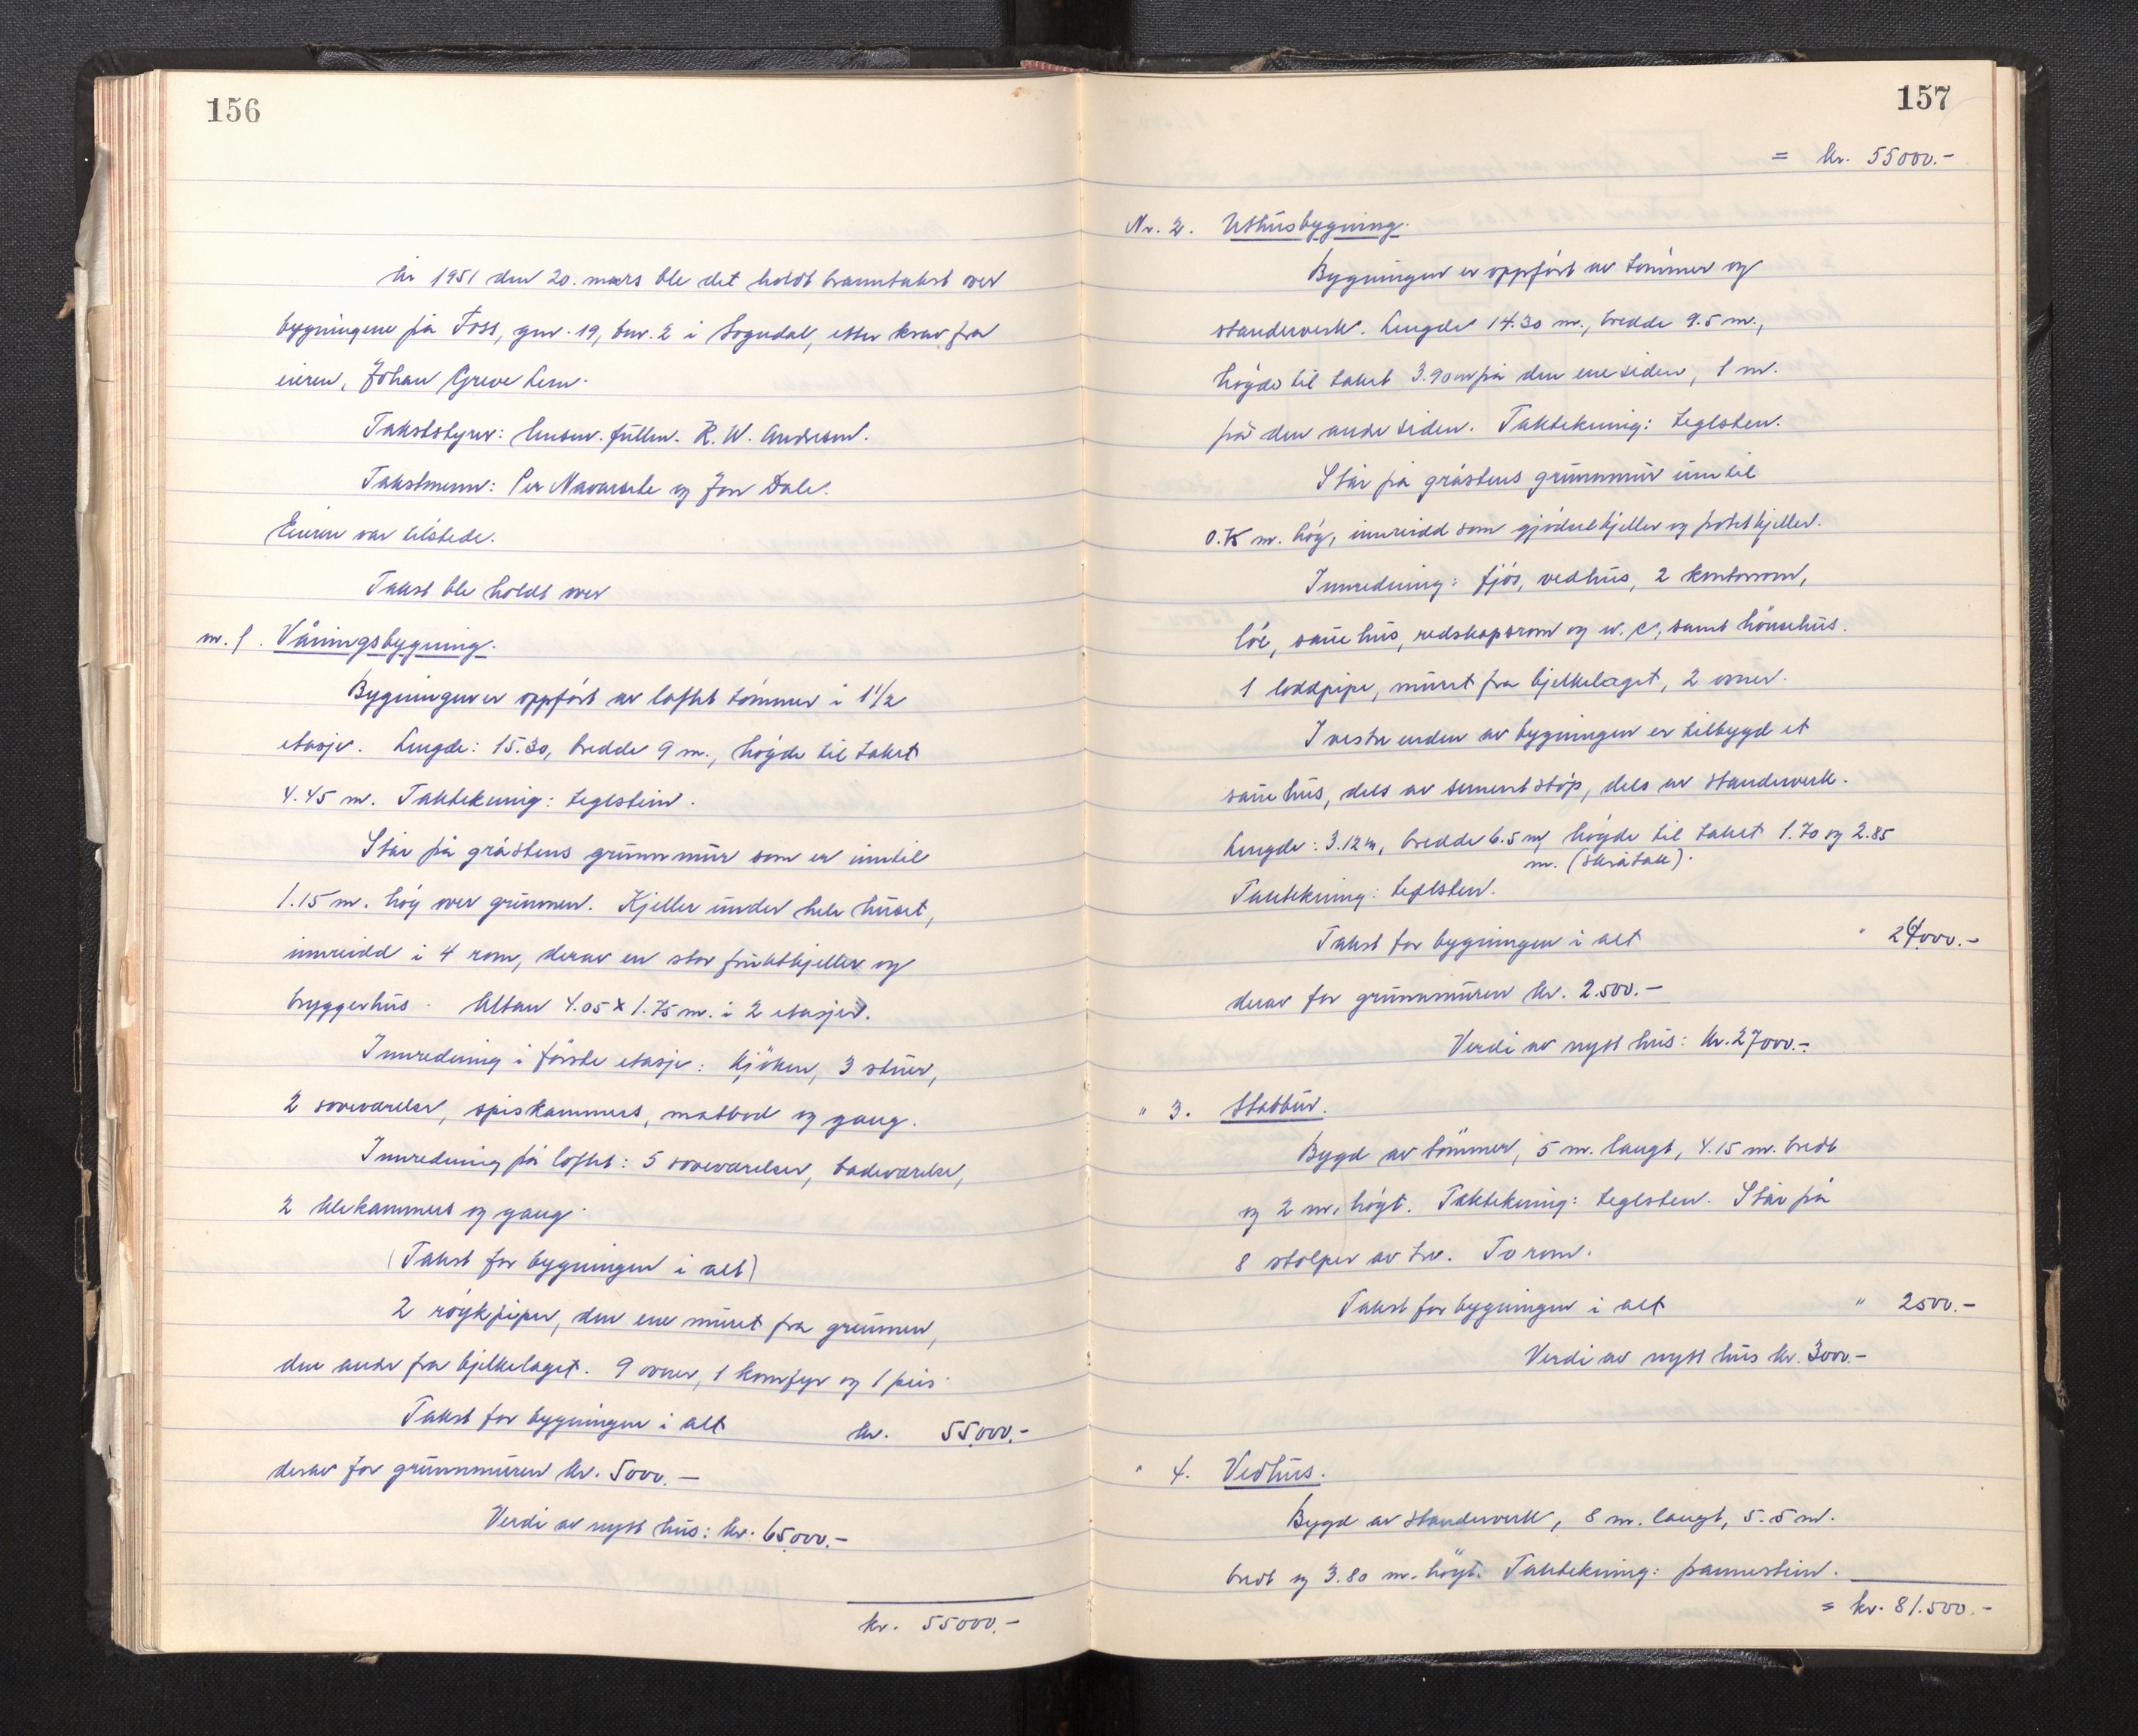 156
År 1951 den 20. mars ble det holdt branntakst over
bygningene på Foss, gnr. 19, bnr. 2 i Sogndal, etter krav fra
eieren, Johan Greve Lem.
Takststyrer: lensm. fullm. R. W. Andresen.
Takstmenn: Per Navarsete og Jon Dale.
Eieren var tilstede.
Takst ble holdt over
nr. 1. Våningsbygning.
Bygningen er oppført av laftet tømmer i 1 1/2
etasje. Lengde: 15.30, bredde 9 m., høgde til taket
4.45 m. Taktekning: teglstein.
Står på gråstens grunnmur som er inntil
1.15 m. høg over grunnen. Kjeller under hele huset,
innreidd i 4 rom, derav en stor fruktkjeller og
bryggerhus. Altan 4.05 x 1.75 m. i 2 etasjer.
Innredning i første etasje: Kjøken, 3 stuer,
2 soveværelser, spiskammers, matbod og gang.
Innredning på loftet: 5 soveværelser, badeværelse,
2 klekammers og gang.
(Takst for bygningen i alt)
2 røykpiper, den ene muret fra grunnen,
den andre fra bjelkelaget. 9 ovner, 1 komfyr og 1 peis.
Takst for bygningen i alt kr. 55.000.-
derav for grunnmuren kr. 5000.-
Verdi av nytt hus: kr. 65.000.-
kr. 55000.-
157
= kr. 55000.-
Nr. 2. Uthusbygning.
Bygningen er oppført av tømmer og
standerverk. Lengde 14.30 m., bredde 9.5 m.,
høgde til taket 3.90 m på den ene siden, 1 m.
på den andre siden. Taktekning: teglsten.
Står på gråstens grunnmur inntil
0.75 m. høg, innreidd som gjødselkjeller og potetkjeller.
Innredning: fjøs, vedhus, 2 kontorrom,
løe, sauehus, redskapsrom og w. c, samt hønsehus.
1 loddpipe, muret fra bjelkelaget, 2 ovner.
I vestre enden av bygningen er tilbygd et
sauehus, dels av sementstøp, dels av standerverk.
Lengde: 3.12 m, bredde 6.5 m, høgde til taket 1.70 og 2.85
m. (skråtak).
Taktekning: teglsten.
Takst for bygningen i alt " 24000.-
derav for grunnmuren kr. 2.500.-
Verdi av nytt hus: kr. 27000.-
" 3. Stabbur.
Bygd av tømmer, 5 m. langt, 4.15 m. bredt
og 2 m. høgt. Taktekning: teglsten. Står på
8 stolper av tre. To rom.
Takst for bygningen i alt " 2500.-
Verdi av nytt hus kr. 3000.-
" 4. Vedhus.
Bygd av standerverk, 8 m. langt, 5.5 m.
bredt og 3.80 m. høgt. Taktekning: pannestein.
= kr. 81.500.-